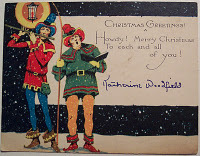 CHRISTMAS GREETINGS!
Howdy! Merry Christmas
To each and all
of you!
Katharine Woodfield